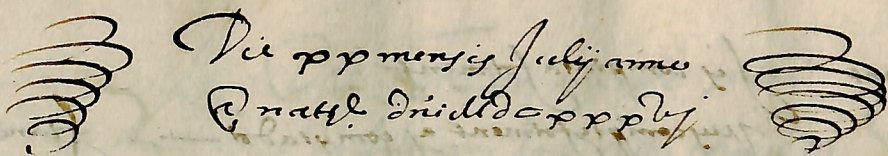 Die xx mensis Julij anno
a natte dñi Mdcxxxvj